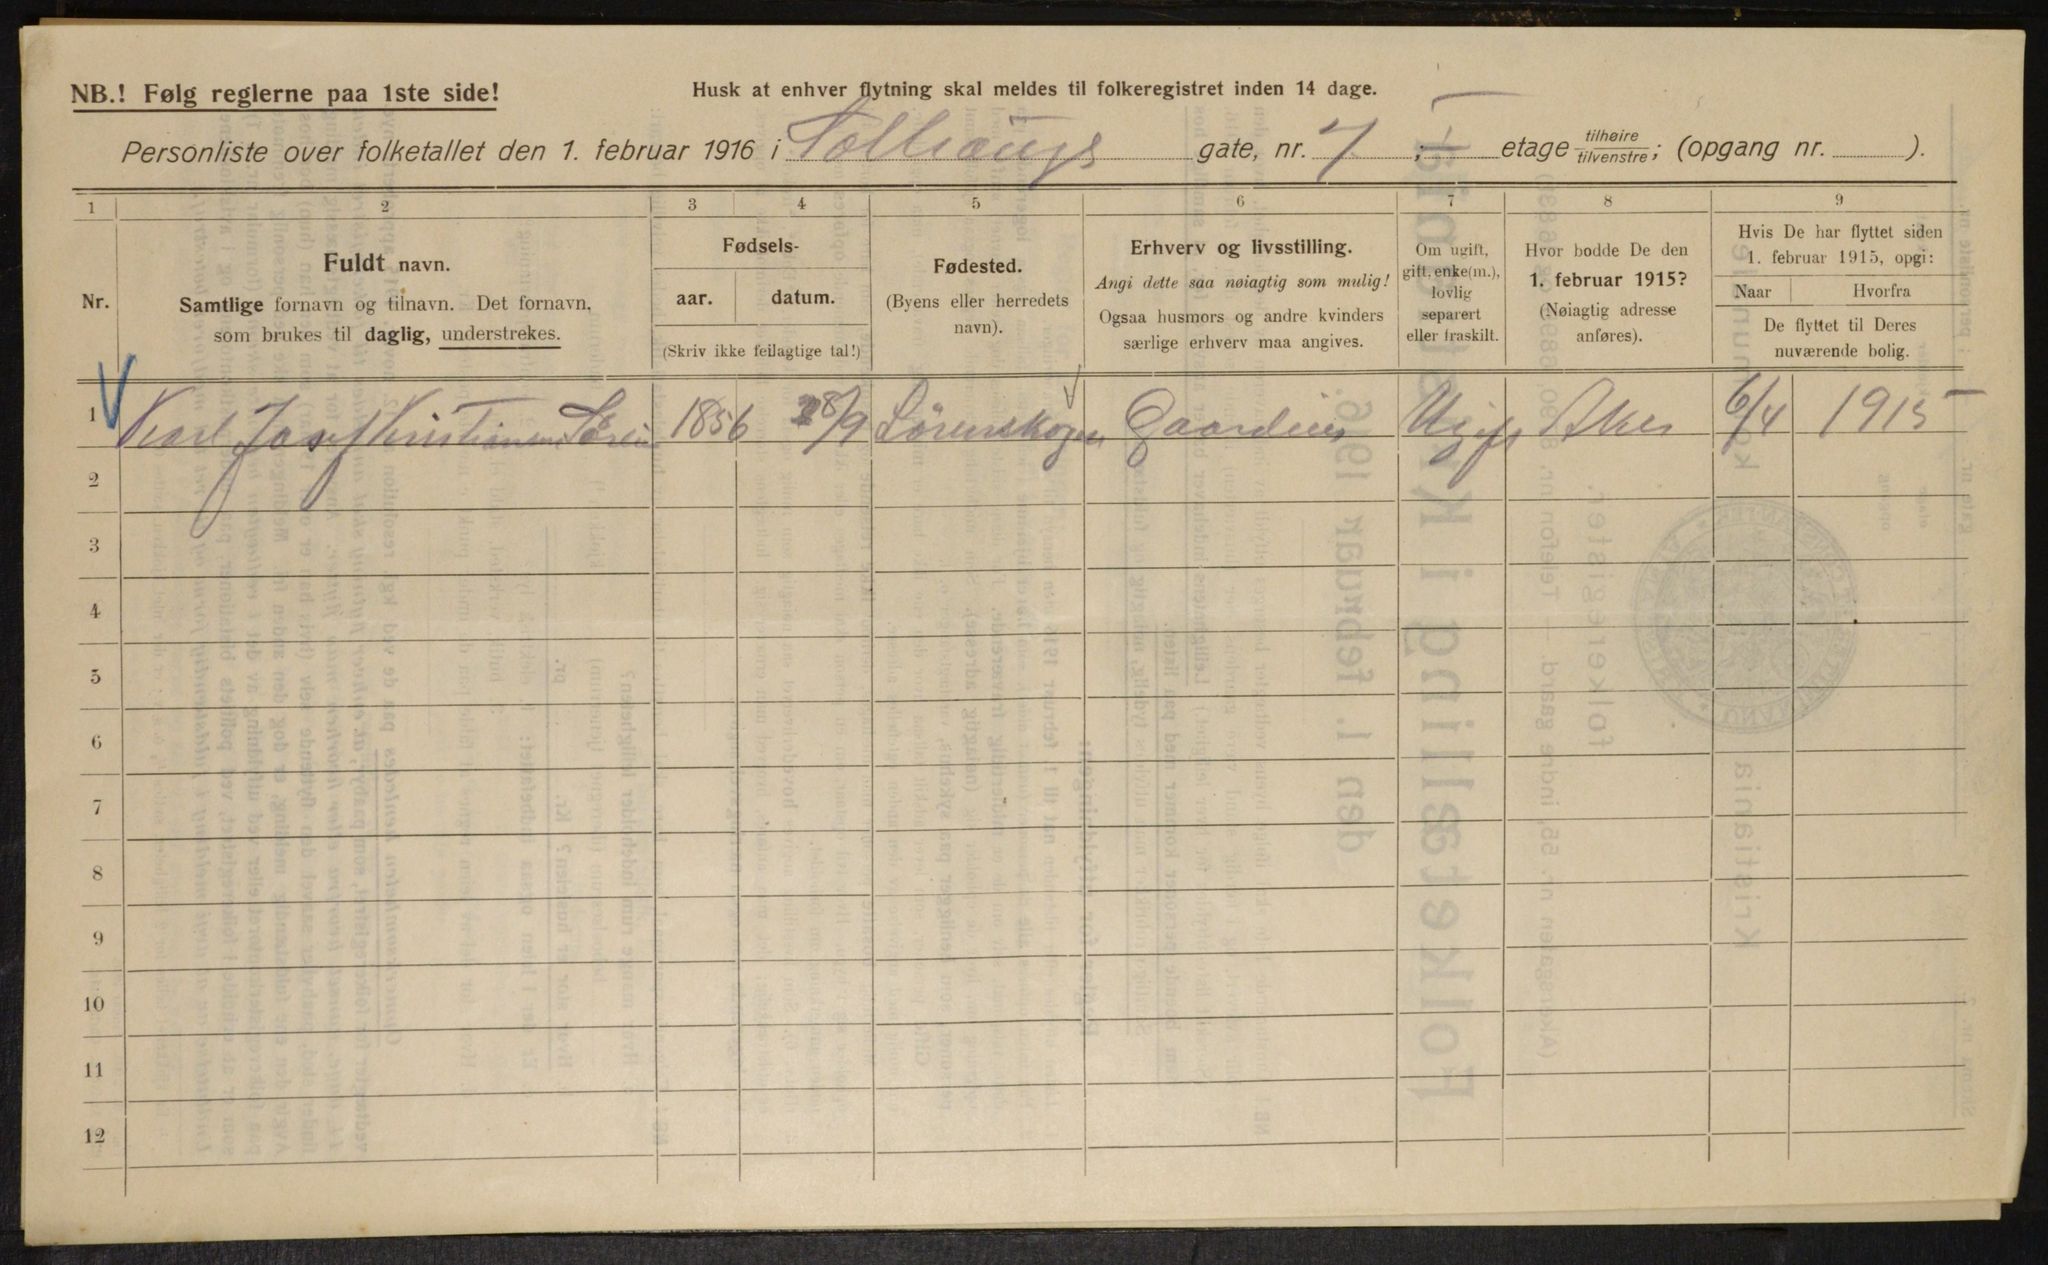 NB.! Følg reglerne paa 1ste side!
Husk at enhver flytning skal meldes til folkeregistret inden 14 dage.
Personliste over folketallet den 1. februar 1916 i gate, nr. 7 ; — etage tilhøire/tilvenstre; (opgang nr. ).
1 2 3 4 5 6 7 8 9
Nr.
Fuldt navn.
Samtlige fornavn og tilnavn. Det fornavn,
som brukes til daglig, understrekes.
Fødsels-
aar. datum.
(Skriv ikke feilagtige tal!)
Fødested.
(Byens eller herredets
navn).
Erhverv og livsstilling.
Angi dette saa nøiagtig som mulig!
Ogsaa husmors og andre kvinders
særlige erhverv maa angives.
Om ugift,
gift, enke(m.),
lovlig
separert
eller fraskilt.
Hvor bodde De den
1. februar 1915?
(Nøiagtig adresse
anføres).
Hvis De har flyttet siden
1. februar 1915, opgi:
Naar Hvorfra
De flyttet til Deres
nuværende bolig.
1 Karl Josef Kristian 1856 28/9 Lørenskogen Ugift Aker 6/4 1915
2
3
4
5
6
7
8
9
10
11
12